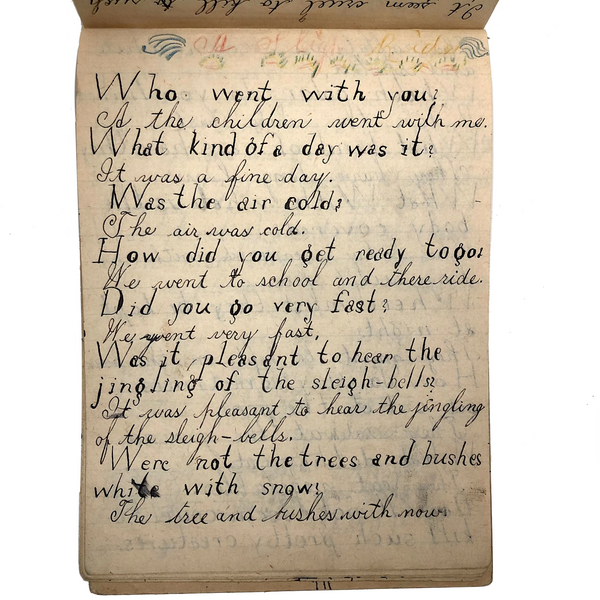 it seem cruel to kill
A Sleigh Ride
Who went with you?
A the children went with me.
What kind of a day was it?
It was a fine day.
Was the air cold?
The air was cold.
How did you get ready to go?
We went to school and there ride.
Did you go very fast?
We went very fast,
Was it pleasant to hear the
jingling of the sleigh-bells?
It was pleasant to hear the jingling
of the sleigh-bells.
Were not the trees and bushes
white with snow?
The tree and bushes with now.